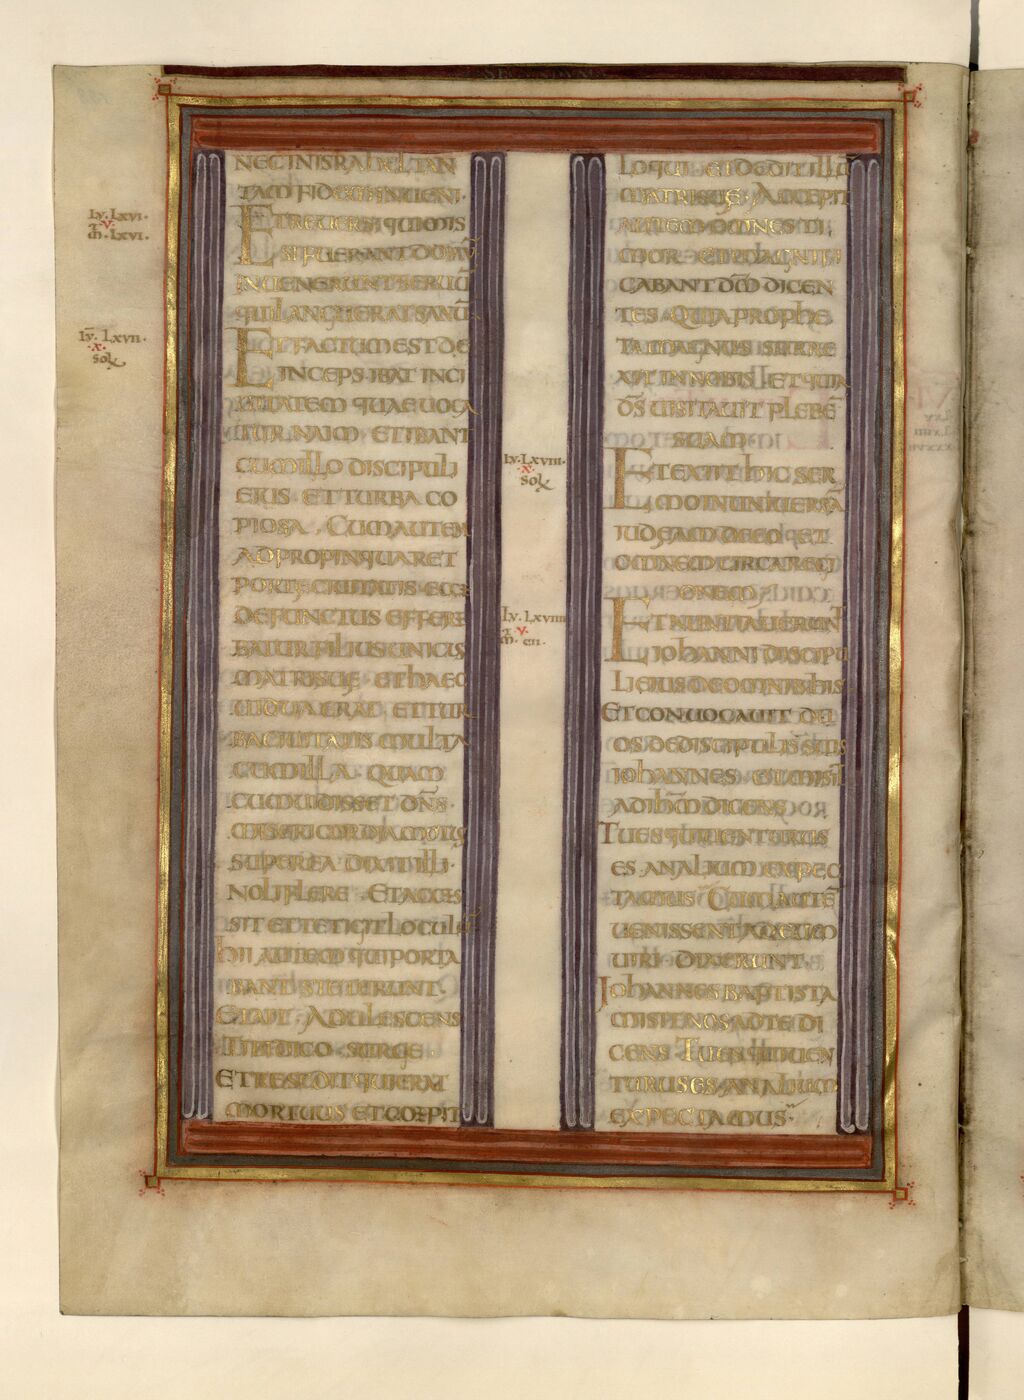 NECINISRAHELTAN
TAMFIDEMINUENI·
ETREUERSIQUIMIS
SIFUERANTDOMŪ
INUENERUNTSERUŪ
QUILANGUERATSANŪ
ETFACTUMESTDE
INCEPS·IBATINCI
UITATEMQUAEUOCA
TURNAIM·ETIBANT
CUMILLODISCIPULI
EIUS·ETTURBACO
PIOSA·CUMAUTEM
ADPROPINQUARET
PORTĘCIUITATIS·ECCE
DEFUNCTUSEFFERE
BATURFILIUSUNICUS
MATRISSUĘ·ETHAEC
UIDUAERAT·ETTUR
BACIUITATISMULTA
CUMILLA·QUAM
CUMUIDISSETDN̄S·
MISERICORDIAMOTUS
SUPEREADIXITILLI·
NOLIFLERE·ETACCES
SITETTETIGITLOCULŪ
HIIAUTEMQUIPORTA
BANTSTETERUNT·
ETAIT·ADULESCENS
TIBIDICO·SURGE·
ETRESEDITQUIERAT
MORTUUSETCOEPIT
LOQUI·ETDEDITILLŪ
MATRISUĘ·ACCEPIT
AUTEMOMNESTI
MOR·ETMAGNIFI
CABANTDM̄DICEN
TES·QUIAPROPHE
TAMAGNUSSURRE
XITINNOBIS·ETQUIA
DS̄UISITAUITPLEBĒ
SUAM·
ETEXIITHICSER
MOINUNIUERSĀ
IUDEAMDEEO·ET
OMNEMCIRCAREGI
ONEM·
ETNUNTIAUERUNT
IOHANNIDISCIPU
LIEIUSDEOMNIBHIS·
ETCONUOCAUITDU
OSDEDISCIPULISSUIS
IOHANNES·ETMISIT
ADIHM̄DICENS
TUESQUIUENTURUS
ESANALIUMEXPEC
TAMUS·CUMAUTĒ
UENISSENTADEUM
UIRIDIXERUNT·
IOHANNESBAPTISTA
MISITNOSADTEDI
CENSTUESQUIUEN
TURUSESANALIUM
EXPECTAMUS·
LV·LXVI·
V·
M·LXVI·
LV·LXVII·
X·
SOL
LV·LXVIII·
X·
SOL
LV·LXVIIII
V·
M·CII·